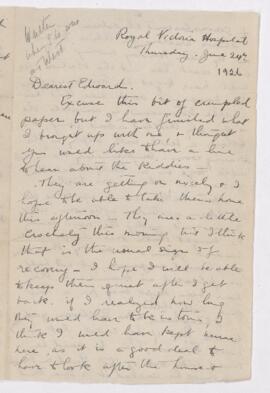 Royal Victoria Hospital
Thursday. June 24th
1926
Dearest Edward.
Excuse this bit of crumpled
paper but I have finished what
I brought up with me & thought
you would like to have a line
to hear about the Kiddies -
They are getting on nicely & I
hope to be able to take them home
this afternoon - They are a little
crochety this morning but I think
that is the usual sign of
recovery - I hope I will be able
to keep them quiet after I get
back. if I realized how long
they would have to be in town, I
think I would have kept nurse
here, as it is a good deal to
have to look after the house &